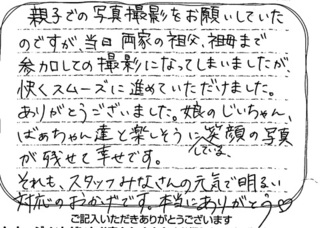 親子での写真撮影をお願いしていた
のですが、当日両家の祖父、祖母まで
参加しての撮影になってしまいましたが、
快くスムーズに進めていただけました。
ありがとうございました。娘のじいちゃん、
ばぁちゃん達と楽しそうに笑顔の写真
している
が残せて幸せです。
それも、スタッフみなさんの元気で明るい
対応のおかげです。本当にありがとう♡
ご記入いただきありがとうございます